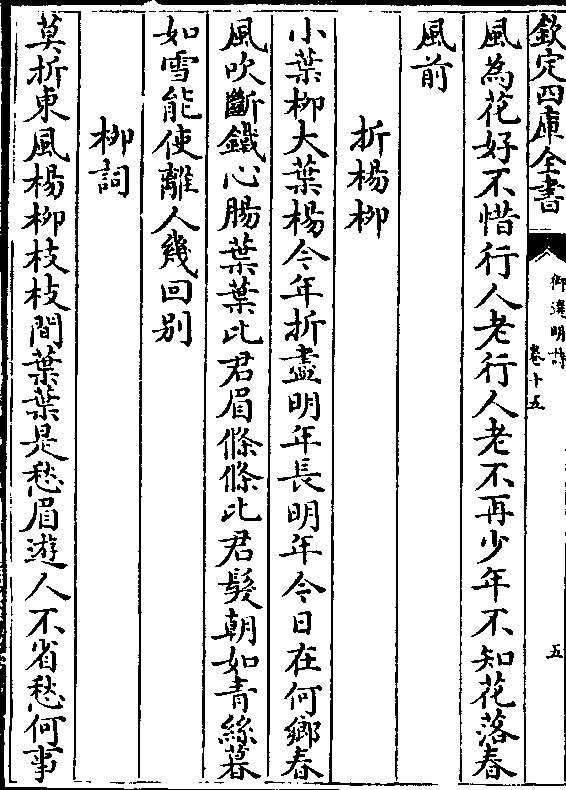 欽定四庫全書
御選明詩
卷十五
五
風為花好不惜行人老行人老不再少年不知花落春
風前
折楊柳
小葉柳大葉楊今年折盡明年長明年今日在何鄉春
風吹斷鐵心腸葉葉比君眉條條比君髮朝如青絲暮
如雪能使離人幾回别
柳詞
莫折東風楊柳枝枝間葉葉是愁眉遊人不省愁何事